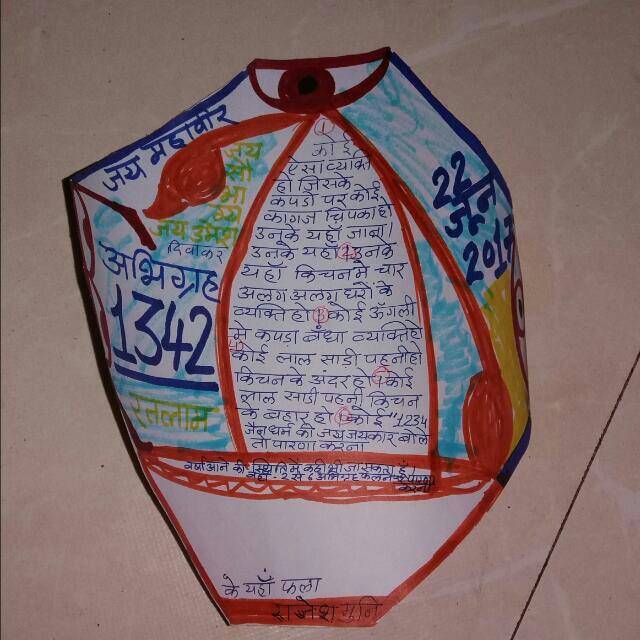 जय महावीर
जय
सौ
भा
ग्य
जय उमेश
दिवाकर
अभिग्रह
1342
रतलाम
22
जून
① कोई
ऐसा व्यक्ति
हो जिसके
कपडो पर कोई
कागज चिपका हो
उनके यहाँ जाना।
उनके यहाँ ② उनके
यहाँ किचन मे चार
अलग अलग घरों के
व्यक्ति हो ③ कोई ऊँगली
मे कपडा बँधा व्यक्ति हो
कोई लाल साडी पहनी हो
किचन के अंदर हो कोई
लाल साडी पहनी किचन
के बहार हो कोई "1234
जैन धर्म की जय जयकार बोले
तो पारणा करना
वर्षा आने की स्थिति में कही भी जा सकता हूँ।
करना
के यहाँ फला
राजेश मुनि